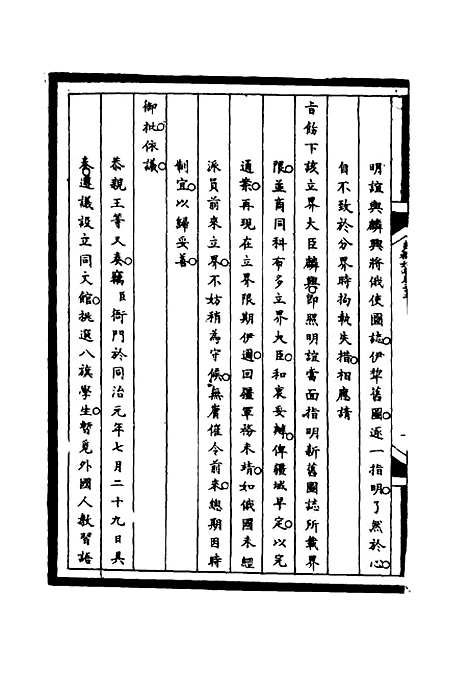 明誼與麟興將俄使圖誌伊犂舊圖逐一指明了然於心
自不致於分界時拘執失措相應請
旨飭下該立界大臣麟興即照明誼當面指明新舊圖誌所載界
限並商同科布多立界大臣和衷妥辦俾疆域早定以完
通案再現在立界限期伊邇回疆軍務未靖如俄國未經
派員前來立界不妨稍為守候無庸催令前來總期因時
制宜以歸妥善
御批依議
恭親王等又奏竊臣衙門於同治元年七月二十九日具
奏遵議設立同文館挑選八旗學生暫覓外國人教習語